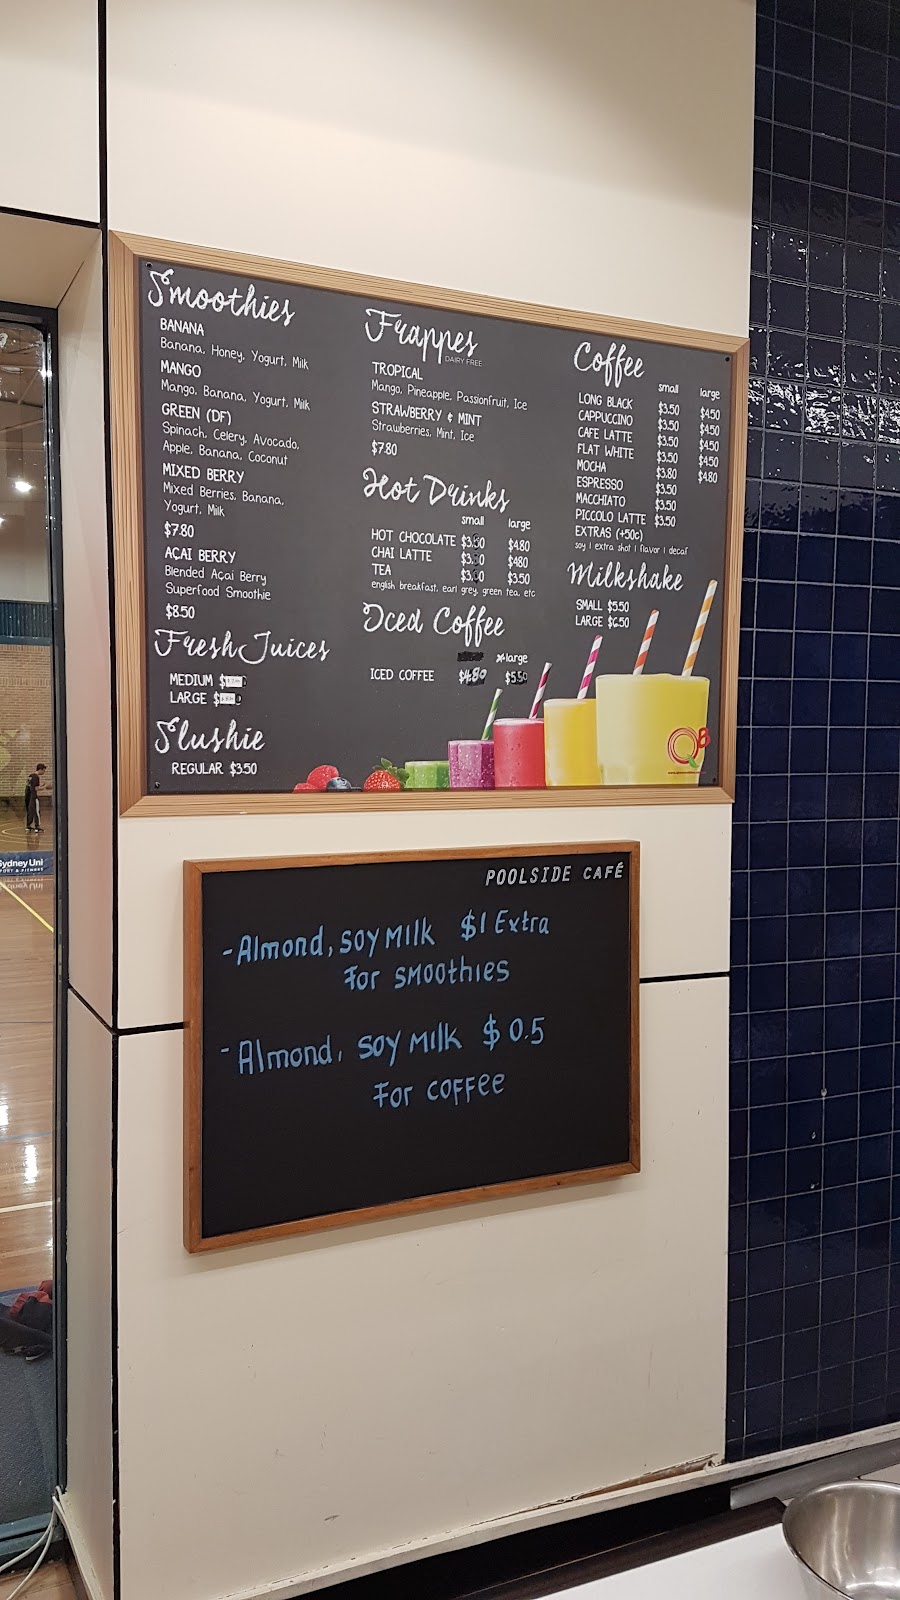 Smoothies
BANANA
Banana, Honey, Yogurt, Milk
MANGO
Mango, Banana, Yogurt, Milk
GREEN (DF)
Spinach, Celery, Avocado,
Apple, Banana, Coconut
MIXED BERRY
Mixed Berries, Banana,
Yogurt, Milk
$7.80
AÇAI BERRY
Blended Açai Berry
Superfood Smoothie
$8.50
Fresh Juices
MEDIUM $
LARGE $
Slushie
REGULAR $3.50
Frappes
DAIRY FREE
TROPICAL
Mango, Pineapple, Passionfruit, Ice
STRAWBERRY & MINT
Strawberries, Mint, Ice
$7.80
Hot Drinks
small large
HOT CHOCOLATE $4.80
CHAI LATTE $4.80
TEA $3.50
english breakfast, earl grey, green tea, etc
Iced Coffee
large
ICED COFFEE $4.80 $5.50
Coffee
small large
LONG BLACK $3.50 $4.50
CAPPUCCINO $3.50 $4.50
CAFE LATTE $3.50 $4.50
FLAT WHITE $3.50 $4.50
MOCHA $3.80 $4.80
ESPRESSO $3.50
MACCHIATO $3.50
PICCOLO LATTE $3.50
EXTRAS (+50c)
soy | extra shot | flavor | decaf
Milkshake
SMALL $5.50
LARGE $6.50
POOLSIDE CAFÉ
- Almond, soy Milk $1 Extra
For smoothies
- Almond, soy milk $ 0.5
For coffee
Sydney Uni